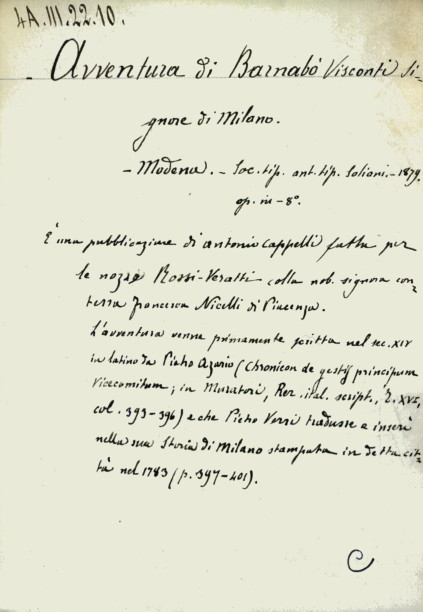 4A.III.22.10.
- Avventura di Barnabò Visconti Si-
gnore di Milano.
- Modena. - Soc. tip. ant. tip. Soliani. - 1879.
op. in - 8°.
È una pubblicazione di Antonio Cappelli fatta per
le nozze Rossi-Veratti colla nob. signora con=
tessa Francesca Nicelli di Piacenza.
L'avventura venne primamente scritta nel sec. XIV
in latino da Pietro Azario (Chronicon de gestis principum
Vicecomitum; in Muratori, Rer. ital. script., T. XVI,
col. 393-396) e che Pietro Verri tradusse e inserì
nella sua Storia di Milano stampata in detta cit=
tà nel 1783 (p. 397-401).
C